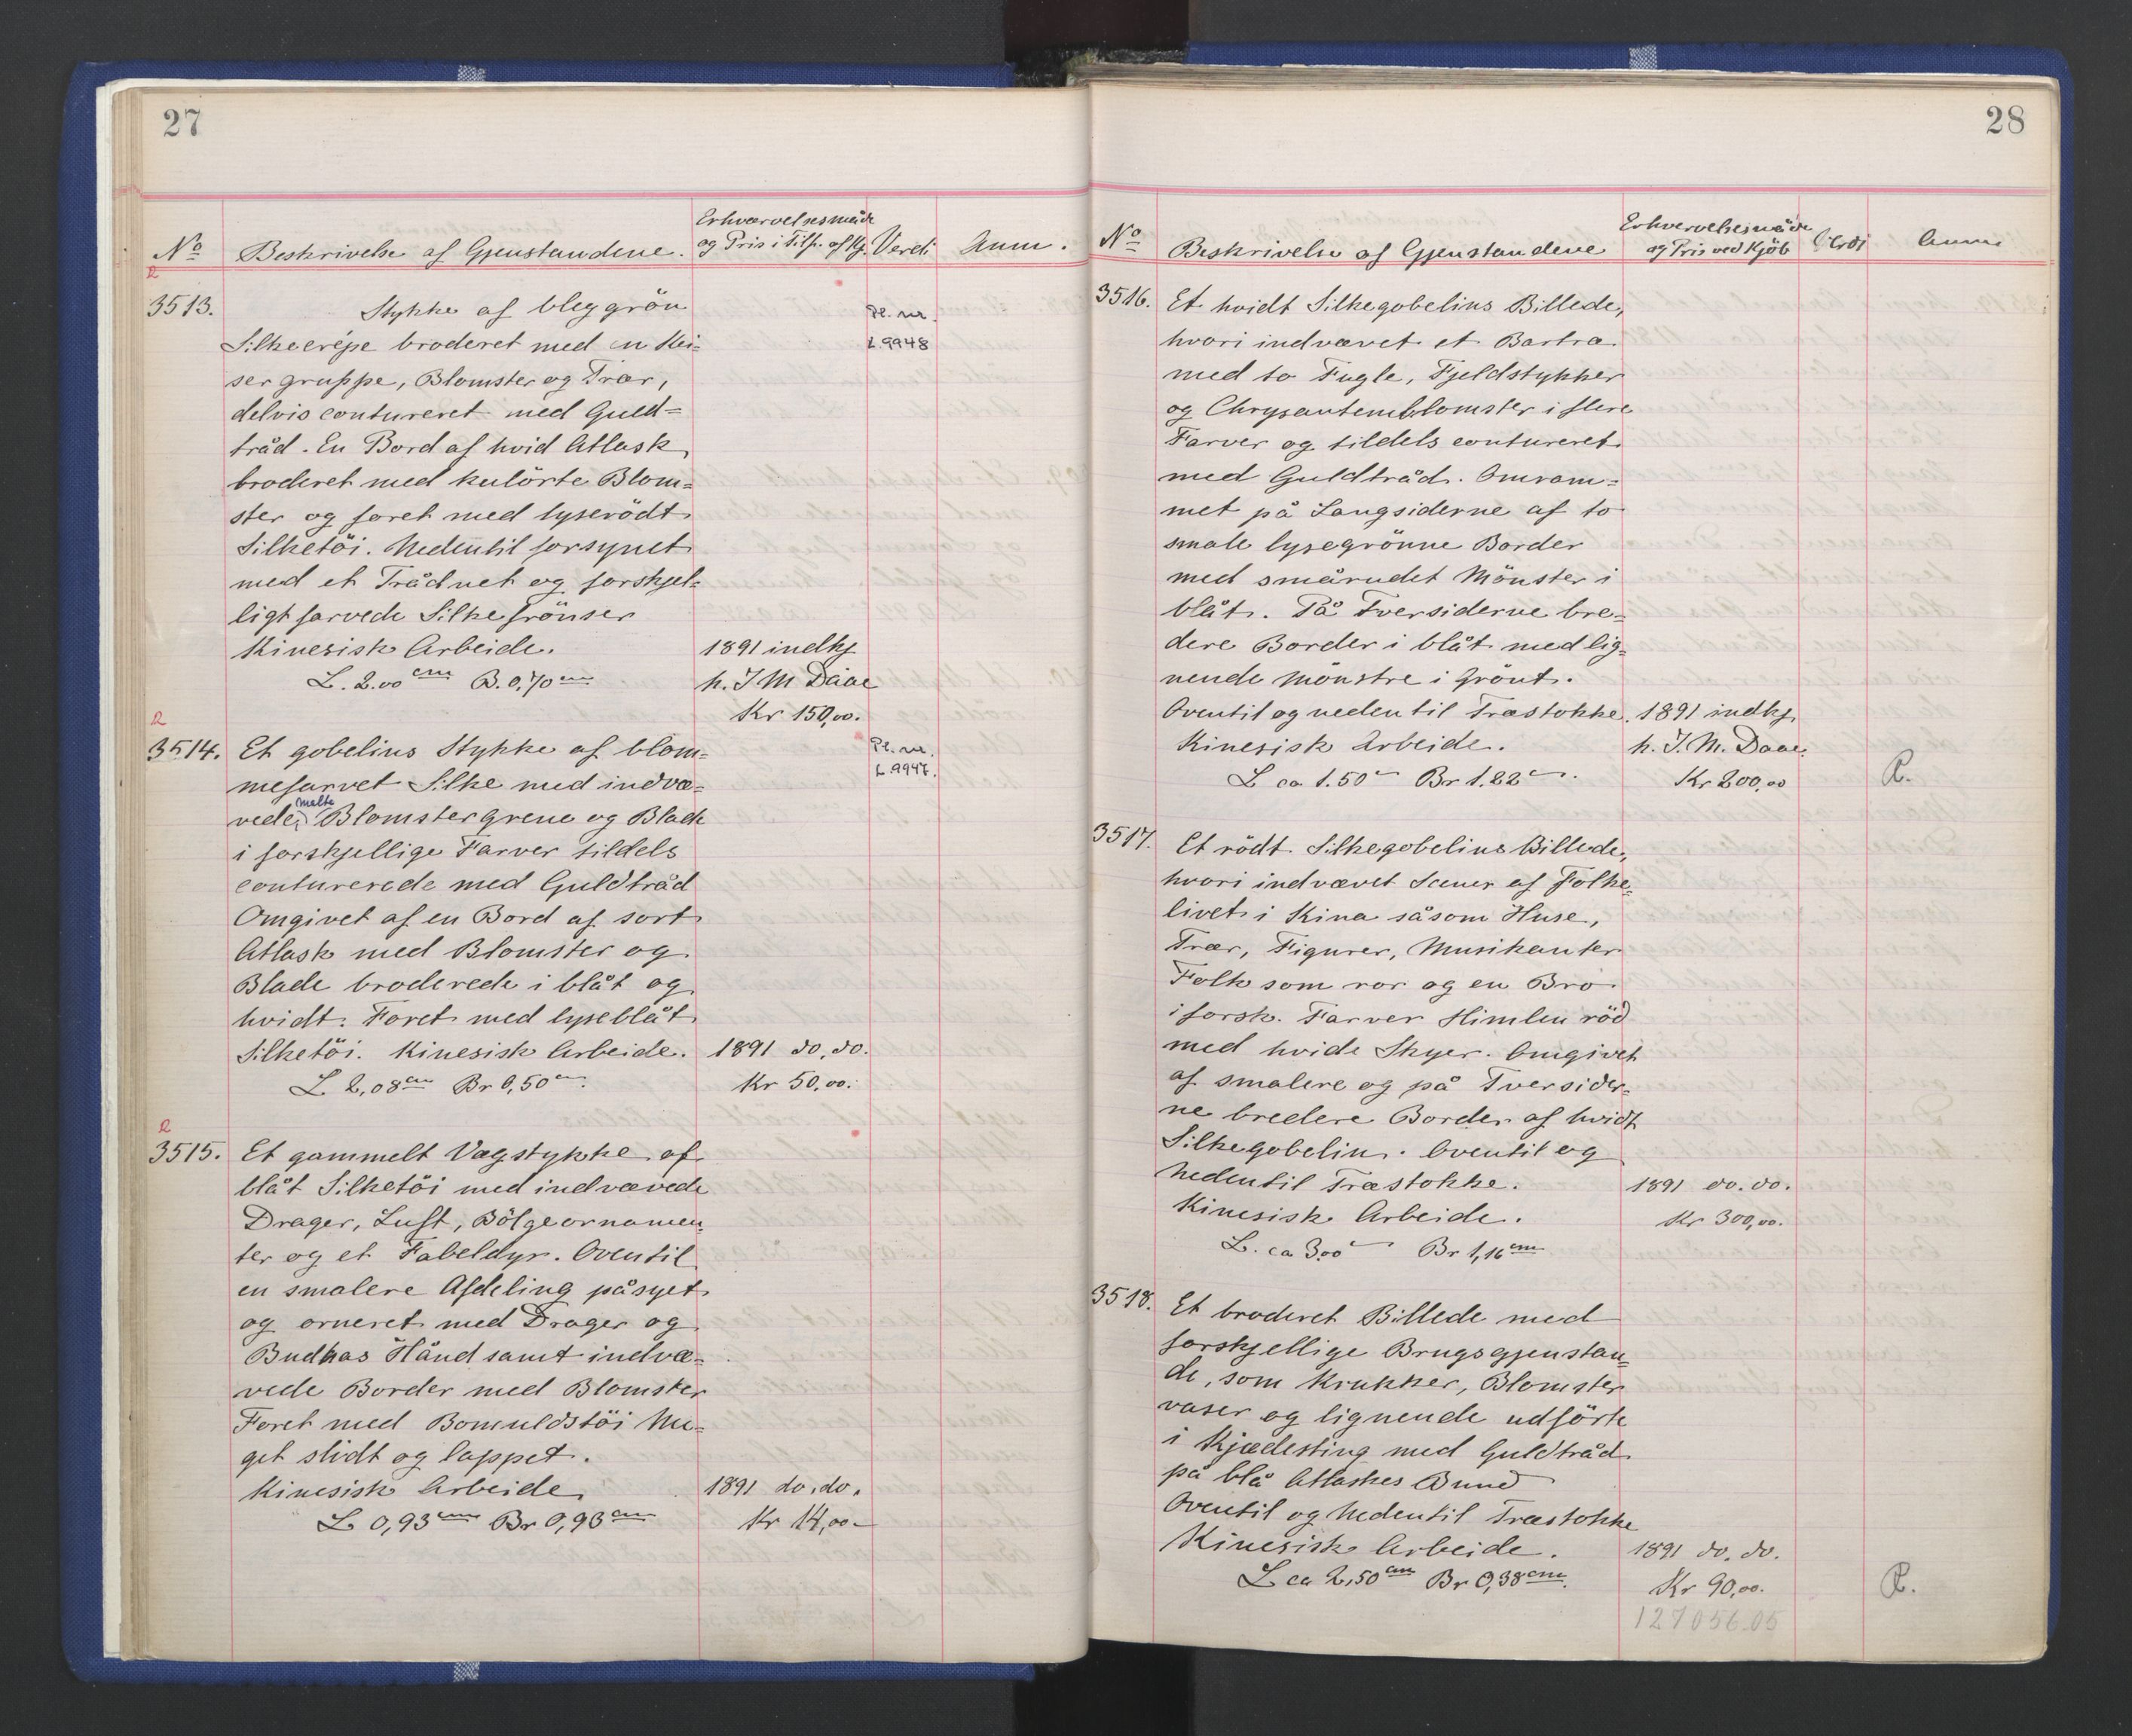 27
No
Beskrivelse af Gjenstandene.
Erhvervelsesmåde
og Pris i Tilf. af Kj.
Verdi
Anm.
3513.
Stykke af bleg grön
Silkecrépe broderet med en Kei=
ser gruppe, Blomster og Trær,
delvis contureret med Guld=
tråd. En Bord af hvid Atlask
broderet med kulörte Blom=
ster og foret med lyserödt
Silketöi. Nedentil forsynet
med et Trådnet og forskjel=
ligt farvede Silkefrönser
Kinesisk Arbeide.
L. 2.00 cm B. 0,70 cm
1891 indkj.
h. J M Daae
Kr 150,00.
Pl. nr.
L 9948
3514.
Et gobelins Stykke af blom=
mefarvet Silke med indvæ=
vede malte Blomstergrene og Blade
i forskjellige Farver tildels
conturerede med Guldtråd
Omgivet af en Bord af sort
Atlask med Blomster og
Blade broderede i blåt og
hvidt. Foret med lyseblåt
Silketöi. Kinesisk Arbeide.
L 2,08 cm Br 0,50 cm.
1891 do. do.
Kr 50,00.
Pl. nr.
L 9947.
3515.
Et gammelt Vægstykke af
blåt Silketöi med indvævede
Drager, Luft, Bölgeornamen=
ter og et Fabeldyr. Oventil
en smalere Afdeling påsyet
og orneret med Drager og
Budhas Hånd samt indvæ=
vede Border med Blomster
Foret med Bomuldstöi Me=
get slidt og lappet.
Kinesisk Arbeide
L 0,93 cm Br 0,93 cm
1891 do. do.
Kr 14,00
28
No
Beskrivelse af Gjenstandene
Erhvervelsesmåde
og Pris ved Kjöb
Verdi
Anm
3516.
Et hvidt Silkegobelins Billede,
hvori indvævet et Bartræ
med to Fugle, Fjeldstykker
og Chrysantemblomster i flere
Farver og tildels contureret
med Guldtråd. Omram=
met på Langsiderne af to
smale lysegrönne Border
med smårudet Mönster i
blåt. På Tversiderne bre=
dere Border i blåt med lig=
nende Mönstre i Grönt.
Oventil og nedentil Træstokke.
Kinesisk Arbeide.
L ca 1.50 cm Br 1.22 cm.
1891 indkj.
h. J. M. Daae.
Kr 200,00
R.
3517.
Et rödt Silkegobelins Billede,
hvori indvævet Scener af Folke=
livet i Kina såsom Huse,
Trær, Figurer, Musikanter
Folk som ror og en Bro
i forsk. Farver Himlen röd
med hvide Skyer. Omgivet
af smalere og på Tversider=
ne bredere Border af hvidt
Silkegobelin. Oventil og
nedentil Træstokke.
Kinesisk Arbeide.
L. ca 3.00 cm Br 1,16 cm
1891 do. do.
Kr 300,00.
3518.
Et broderet Billede med
forskjellige Brugsgjenstan=
de, som Krukker, Blomster
vaser og lignende udförte
i Kjædesting med Guldtråd
på blå Atlaskes Bund
Oventil og Nedentil Træstokke
Kinesisk Arbeide.
L ca 2,50 cm Br 0,38 cm.
1891 do. do.
Kr 90,00.
127056.05
R.